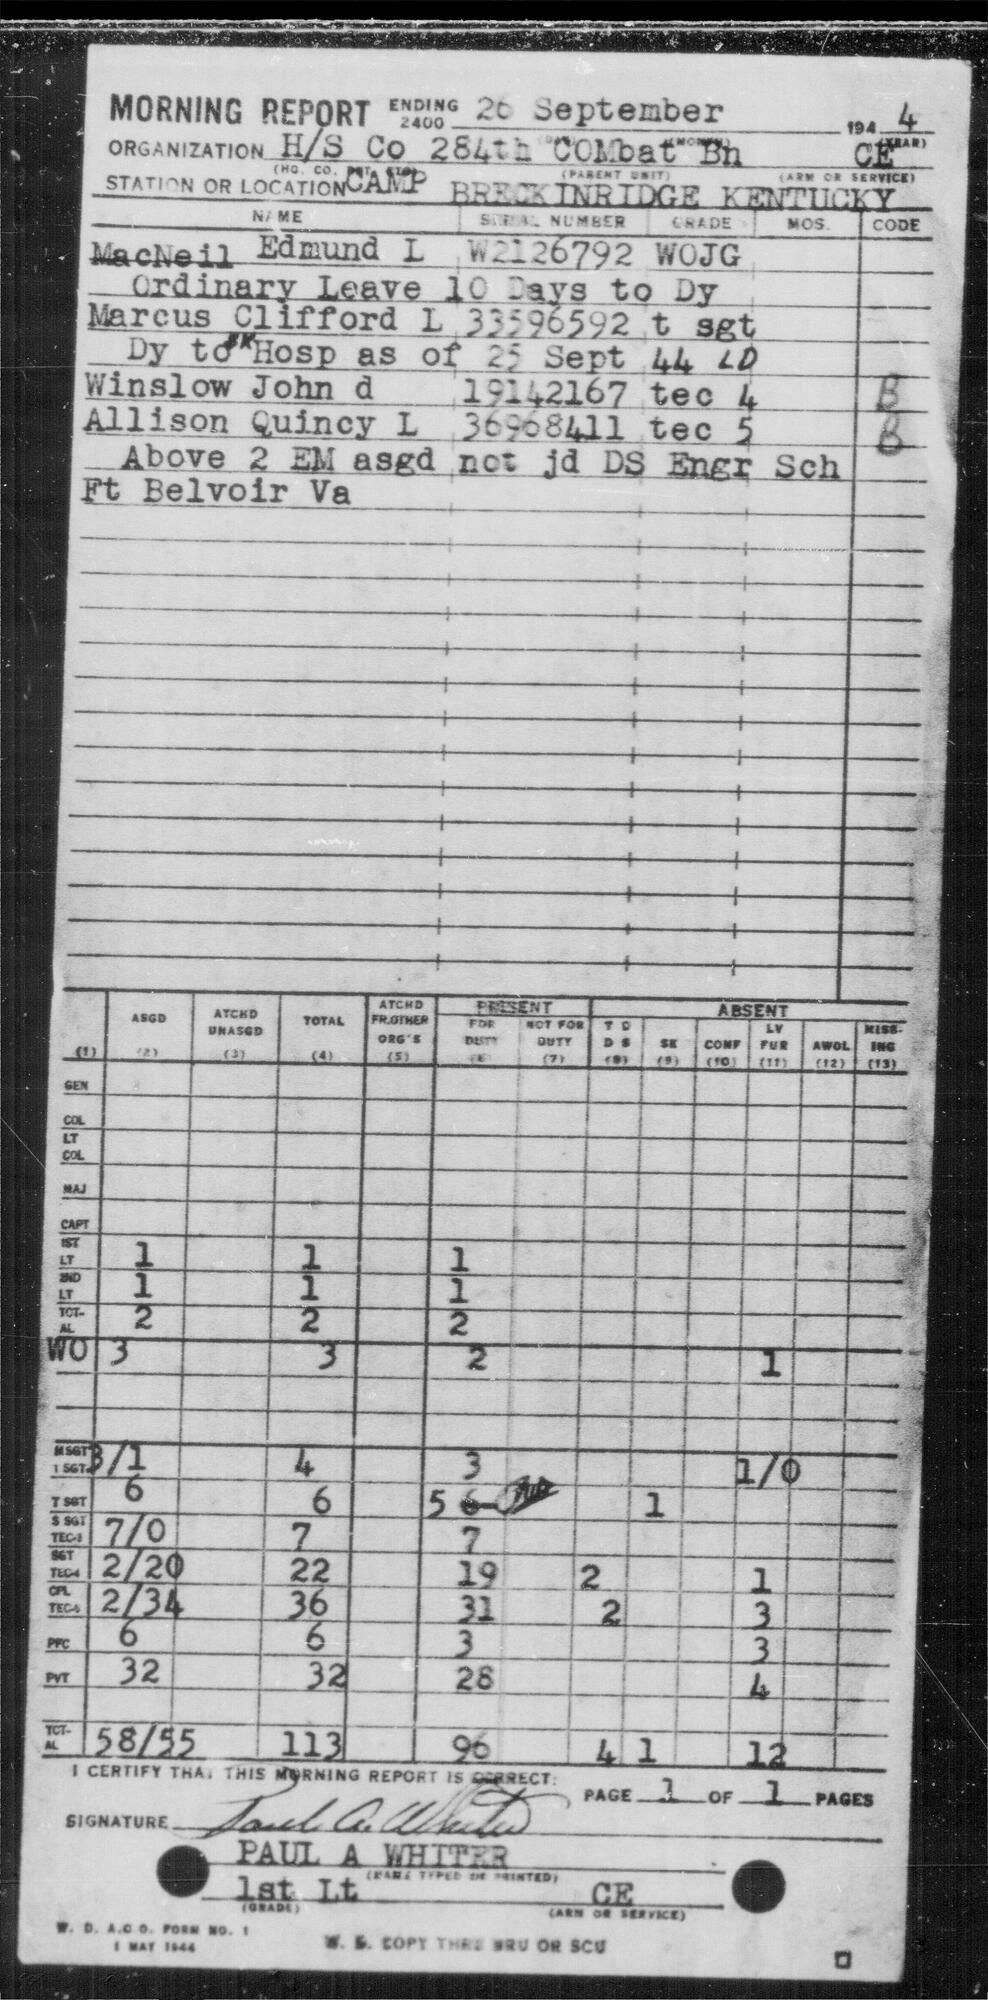 MORNING REPORT ENDING 2400 26 September 194 4
(DAY) (MONTH) (YEAR)
ORGANIZATION H/S Co 284th COMbat Bn CE
(HQ. CO. (PARENT UNIT) (ARM OR SERVICE)
STATION OR LOCATION CAMP BRECKINRIDGE KENTUCKY
NAME SERIAL NUMBER GRADE MOS. CODE
MacNeil Edmund L W2126792 WOJG
Ordinary Leave 10 Days to Dy
Marcus Clifford L 33596592 t sgt
Dy to SK Hosp as of 25 Sept 44 LD
Winslow John d 19142167 tec 4 B
Allison Quincy L 36968411 tec 5 B
Above 2 EM asgd not jd DS Engr Sch
Ft Belvoir Va
PRESENT ABSENT
(1) ASGD (2) ATCHD UNASGD (3) TOTAL (4) ATCHD FR.OTHER ORG'S (5) FOR DUTY (6) NOT FOR DUTY (7) T D D S (8) SK (9) CONF (10) LV FUR (11) AWOL (12) MISSING (13)
GEN
COL
LT COL
MAJ
CAPT
1ST LT 1 1 1
2ND LT 1 1 1
TOTAL 2 2 2
WO 3 3 2 1
M SGT 1 SGT 3/1 4 3 1/0
T SGT 6 6 5 6 1
S SGT TEC-3 7/0 7 7
SGT TEC-4 2/20 22 19 2 1
CPL TEC-5 2/34 36 31 2 3
PFC 6 6 3 3
PVT 32 32 28 4
TOTAL 58/55 113 96 4 1 12
I CERTIFY THAT THIS MORNING REPORT IS CORRECT:
PAGE 1 OF 1 PAGES
SIGNATURE Paul A. Whiter
PAUL A WHITER
(NAME TYPED OR PRINTED)
1st Lt CE
(GRADE) (ARM OR SERVICE)
W. D. A.G.O. FORM NO. 1
1 MAY 1944
W. D. COPY THRU MRU OR SCU